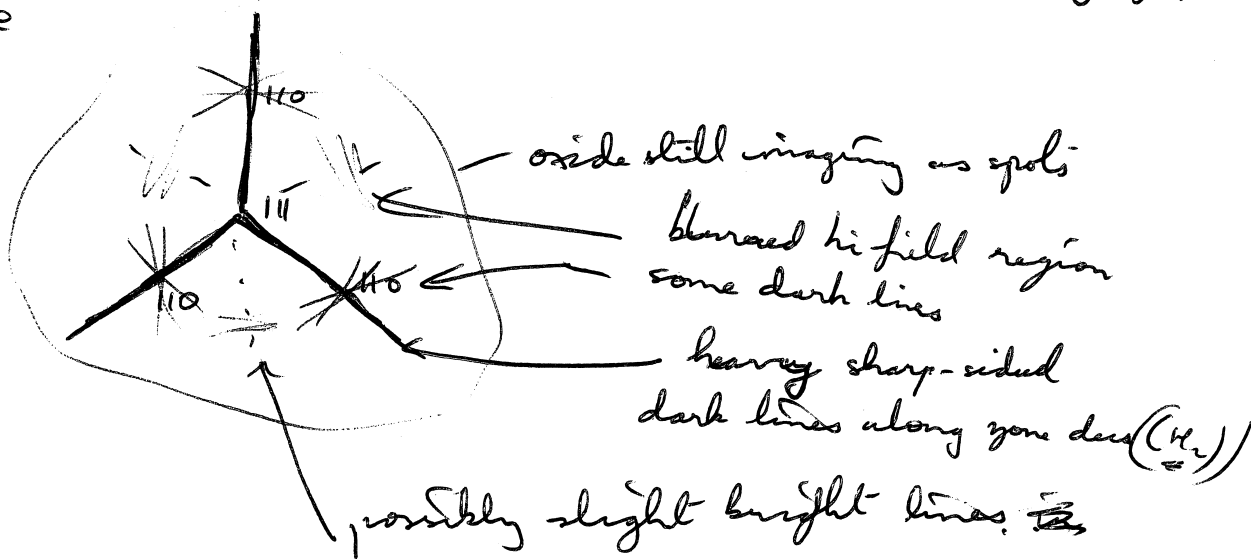 110
oxide still imaging as spots
111
blurred hi field region
110
some dark lines
110
heavy sharp-sided
dark lines along zone decs ((H₂))
possibly slight bright lines.